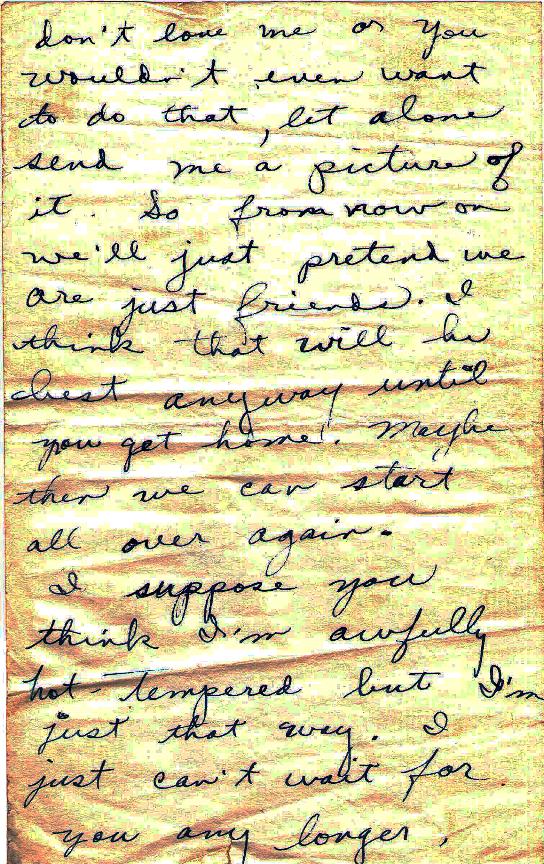 don't love me or you
wouldn't even want
to do that, let alone
send me a picture of
it. So from now on
we'll just pretend we
are just friends. I
think that will be
best anyway until
you get home. Maybe
then we can start
all over again.
I suppose you
think I'm awfully
hot-tempered but I'm
just that way. I
just can't wait for
you any longer.